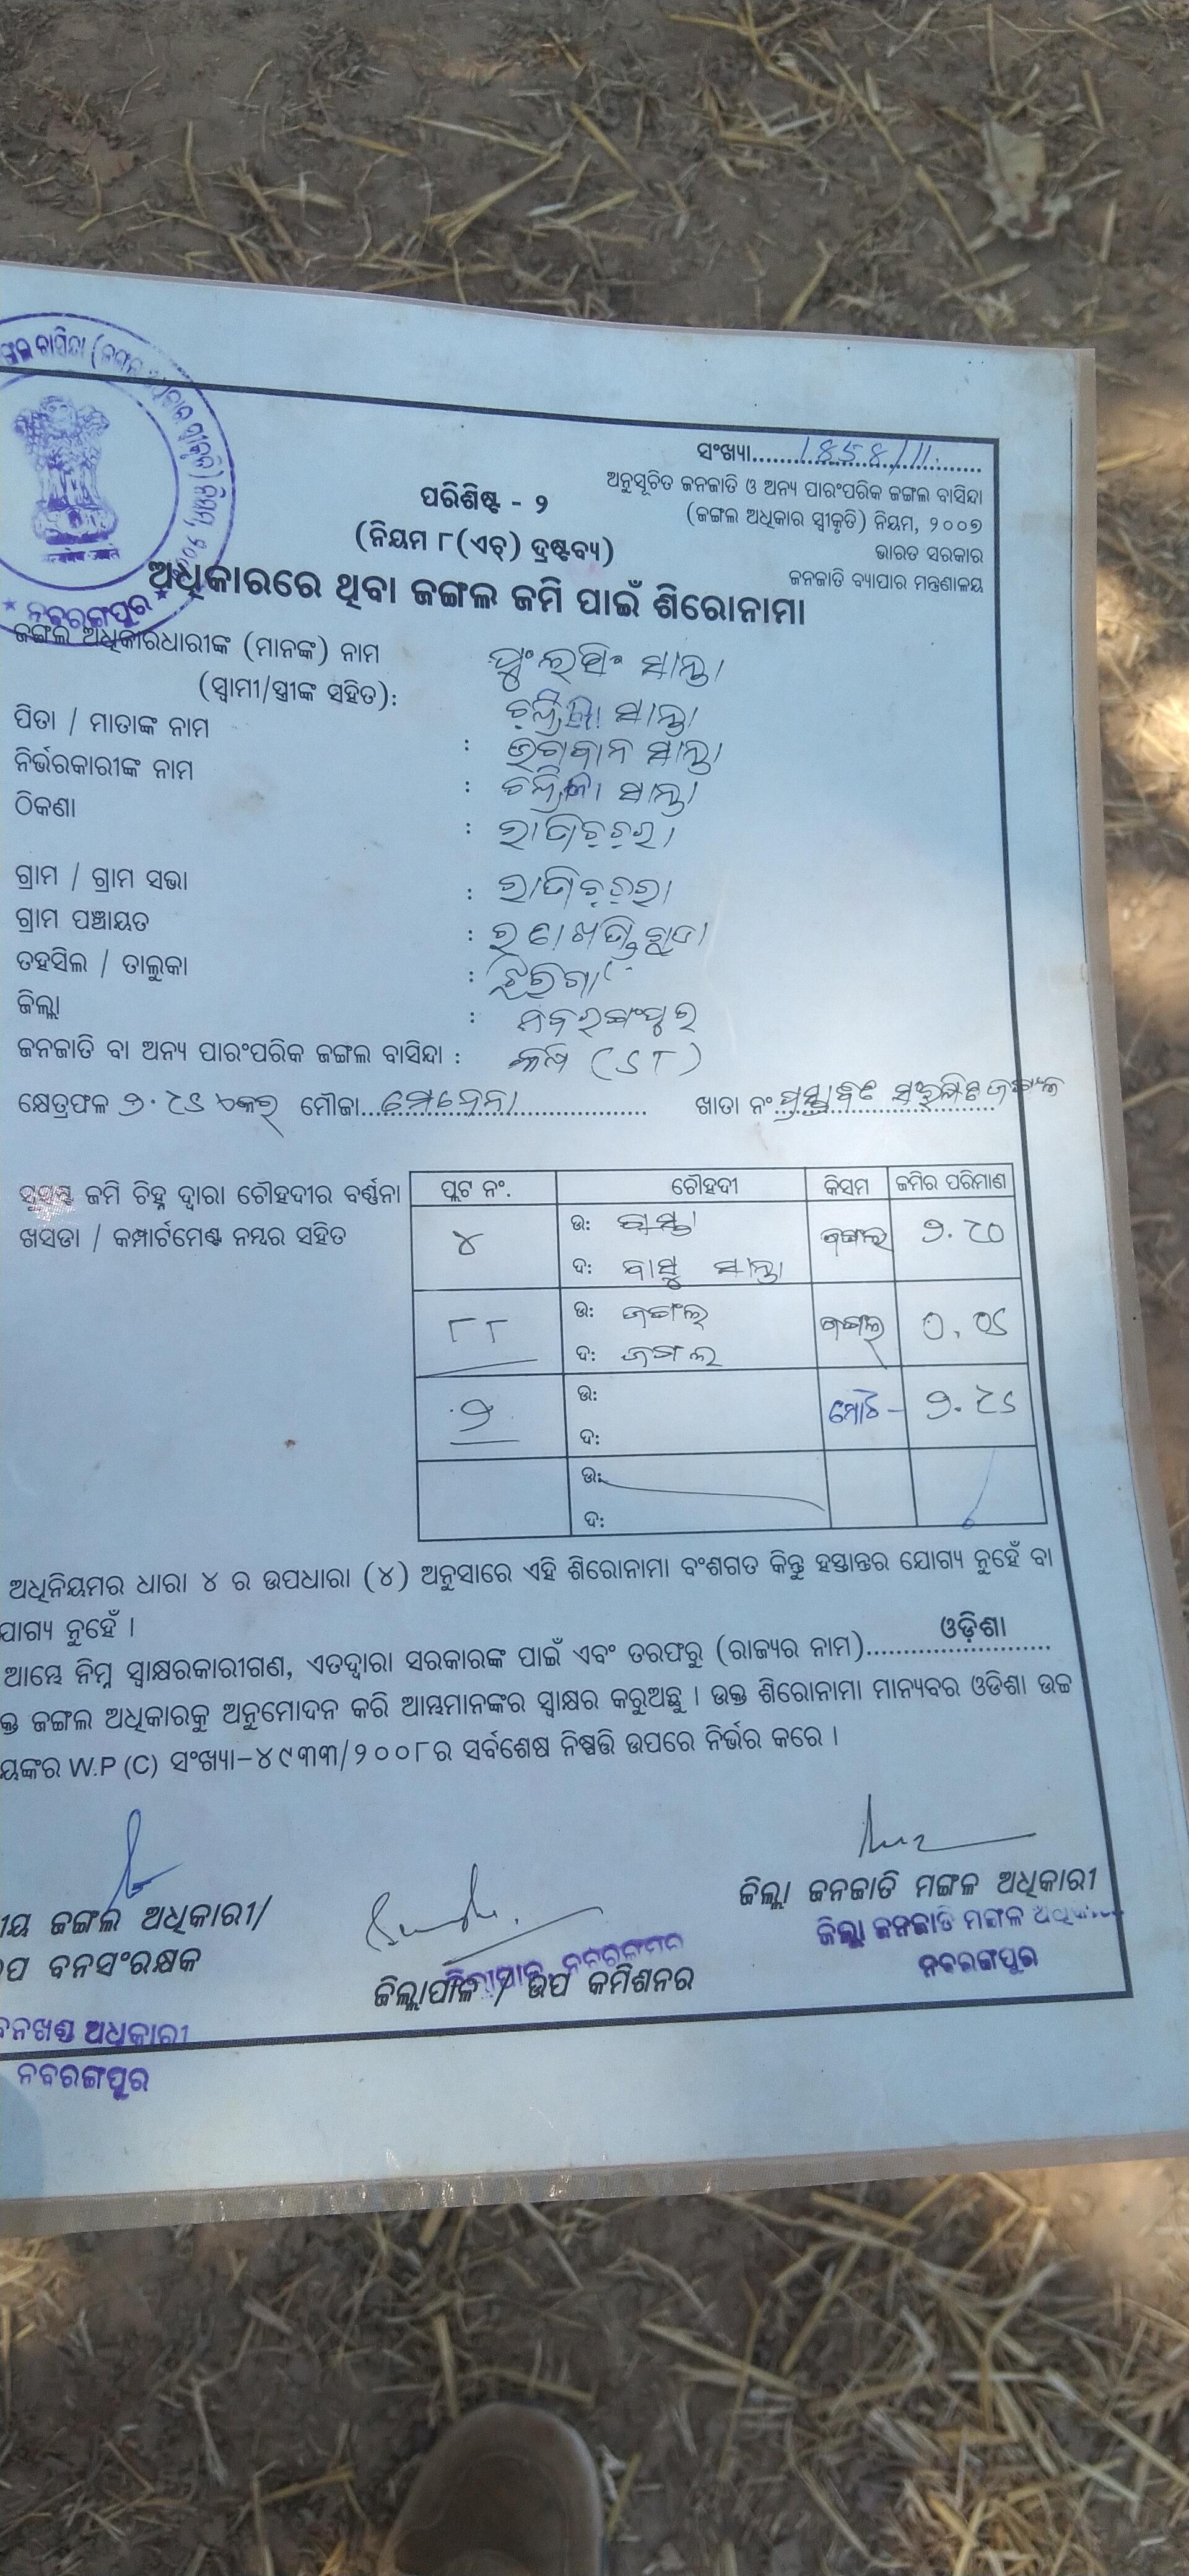 ନବରଙ୍ଗପୁର
ସଂଖ୍ୟା..........1858/11..........
ଅନୁସୂଚିତ ଜନଜାତି ଓ ଅନ୍ୟ ପାରଂପରିକ ଜଙ୍ଗଲ ବାସିନ୍ଦା
(ଜଙ୍ଗଲ ଅଧିକାର ସ୍ୱୀକୃତି) ନିୟମ, ୨୦୦୭
ଭାରତ ସରକାର
ଜନଜାତି ବ୍ୟାପାର ମନ୍ତ୍ରଣାଳୟ
ପରିଶିଷ୍ଟ - ୨
(ନିୟମ ୮(ଏଚ୍) ଦ୍ରଷ୍ଟବ୍ୟ)
ଅଧିକାରରେ ଥିବା ଜଙ୍ଗଲ ଜମି ପାଇଁ ଶିରୋନାମା
ଜଙ୍ଗଲ ଅଧିକାରଧାରୀଙ୍କ (ମାନଙ୍କ) ନାମ ସାନ୍ତା
(ସ୍ୱାମୀ/ସ୍ତ୍ରୀଙ୍କ ସହିତ): ସାନ୍ତା
ପିତା / ମାତାଙ୍କ ନାମ : ଭଗବାନ ସାନ୍ତା
ନିର୍ଭରକାରୀଙ୍କ ନାମ : ସାନ୍ତା
ଠିକଣା :
ଗ୍ରାମ / ଗ୍ରାମ ସଭା :
ଗ୍ରାମ ପଞ୍ଚାୟତ :
ତହସିଲ / ତାଲୁକା : ଝରିଗାଁ
ଜିଲ୍ଲା : ନବରଙ୍ଗପୁର
ଜନଜାତି ବା ଅନ୍ୟ ପାରଂପରିକ ଜଙ୍ଗଲ ବାସିନ୍ଦା : (ST)
କ୍ଷେତ୍ରଫଳ ୨.୯୫ ଏକର ମୌଜା.................... ଖାତା ନଂ ପ୍ରସ୍ତାବିତ ସଂରକ୍ଷିତ ଜଙ୍ଗଲ
ସୁସ୍ପଷ୍ଟ ଜମି ଚିହ୍ନ ଦ୍ୱାରା ଚୌହଦୀର ବର୍ଣ୍ଣନା
ଖସଡା / କମ୍ପାର୍ଟମେଣ୍ଟ ନମ୍ବର ସହିତ
ପ୍ଲଟ ନଂ. ଚୌହଦୀ କିସମ ଜମିର ପରିମାଣ
୪ ଉ: ରାସ୍ତା ଜଙ୍ଗଲ ୨.୯୦
ଦ: ବାସୁ ସାନ୍ତା
୮୮ ଉ: ଜଙ୍ଗଲ ଜଙ୍ଗଲ ୦.୦୫
ଦ: ଜଙ୍ଗଲ
୨ ଉ: ମୋଟ - ୨.୯୫
ଦ:
ଉ:
ଦ:
ଅଧିନିୟମର ଧାରା ୪ ର ଉପଧାରା (୪) ଅନୁସାରେ ଏହି ଶିରୋନାମା ବଂଶଗତ କିନ୍ତୁ ହସ୍ତାନ୍ତର ଯୋଗ୍ୟ ନୁହେଁ ବା
ଯୋଗ୍ୟ ନୁହେଁ ।
ଆମ୍ଭେ ନିମ୍ନ ସ୍ୱାକ୍ଷରକାରୀଗଣ, ଏତଦ୍ଵାରା ସରକାରଙ୍କ ପାଇଁ ଏବଂ ତରଫରୁ (ରାଜ୍ୟର ନାମ)..........ଓଡ଼ିଶା..........
କ୍ତ ଜଙ୍ଗଲ ଅଧିକାରକୁ ଅନୁମୋଦନ କରି ଆମ୍ଭମାନଙ୍କର ସ୍ୱାକ୍ଷର କରୁଅଛୁ । ଉକ୍ତ ଶିରୋନାମା ମାନ୍ୟବର ଓଡିଶା ଉଚ୍ଚ
ୟଙ୍କର W.P (C) ସଂଖ୍ୟା-୪୯୩୩/୨୦୦୮ର ସର୍ବଶେଷ ନିଷ୍ପତ୍ତି ଉପରେ ନିର୍ଭର କରେ ।
ୀୟ ଜଙ୍ଗଲ ଅଧିକାରୀ/
ପ ବନସଂରକ୍ଷକ
ବନଖଣ୍ଡ ଅଧିକାରୀ
ନବରଙ୍ଗପୁର
ଜିଲ୍ଲାପାଳ / ଉପ କମିଶନର
ଜିଲ୍ଲାପାଳ, ନବରଙ୍ଗପୁର
ଜିଲ୍ଲା ଜନଜାତି ମଙ୍ଗଳ ଅଧିକାରୀ
ଜିଲ୍ଲା ଜନଜାତି ମଙ୍ଗଳ ଅଧିକାରୀ
ନବରଙ୍ଗପୁର